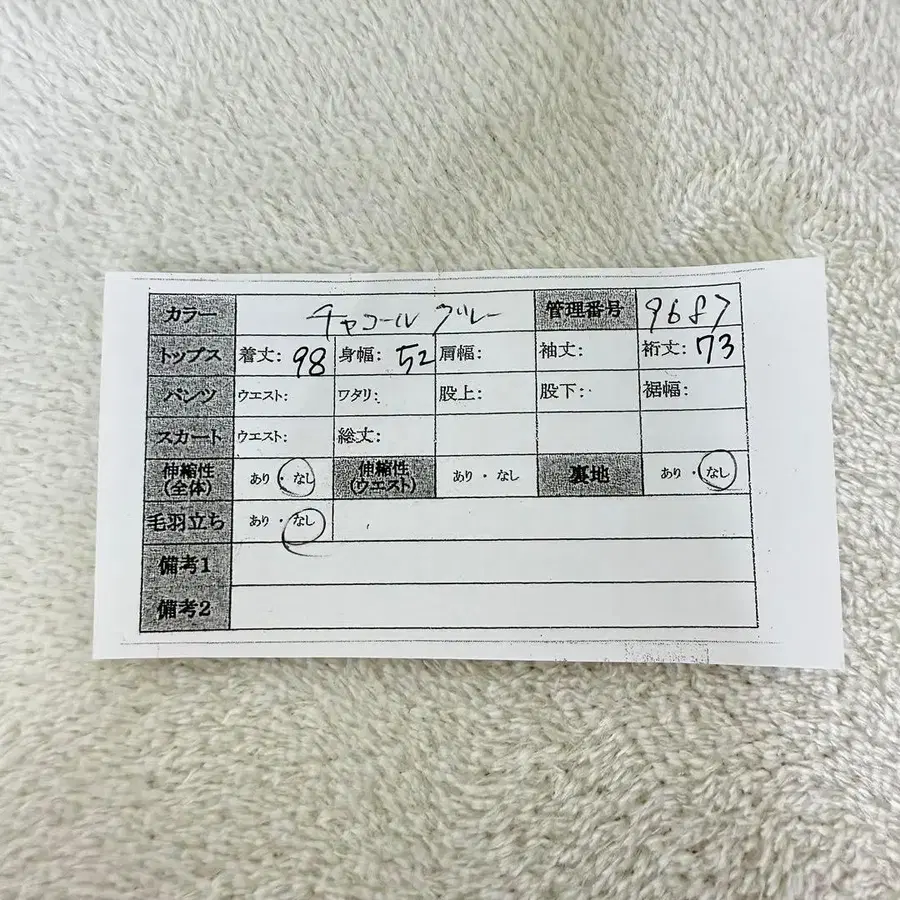 カラー チャコール グレー 管理番号 9687
トップス 着丈: 98 身幅: 52 肩幅: 袖丈: 裄丈: 73
パンツ ウエスト: ワタリ: 股上: 股下: 裾幅:
スカート ウエスト: 総丈:
伸縮性(全体) あり・なし 伸縮性(ウエスト) あり・なし 裏地 あり・なし
毛羽立ち あり・なし
備考1
備考2